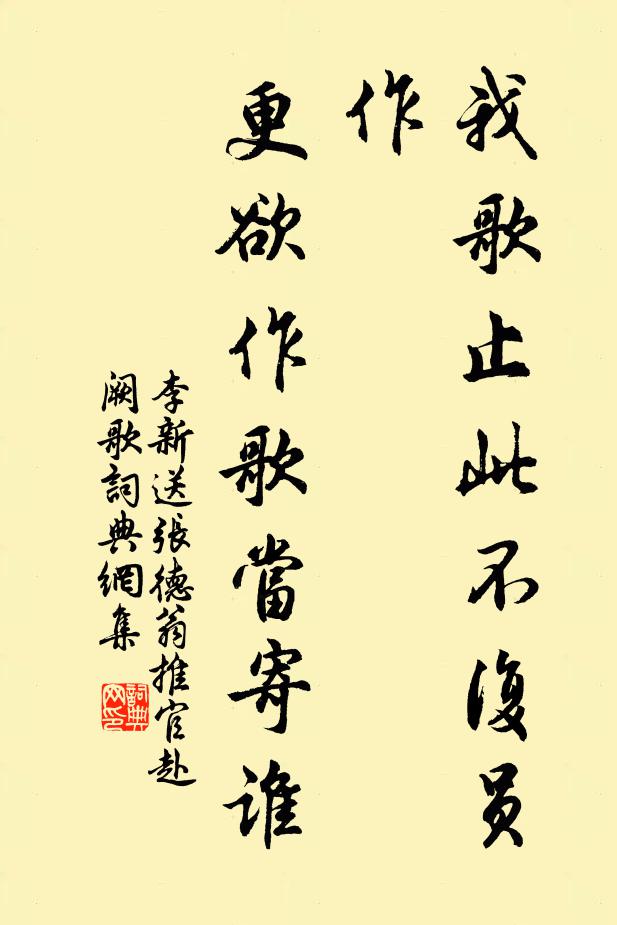 我歌止此不復員
作
更欲作歌當寄誰
李新送張德翁推官赴
闕歌詞典網集
詞典
网印